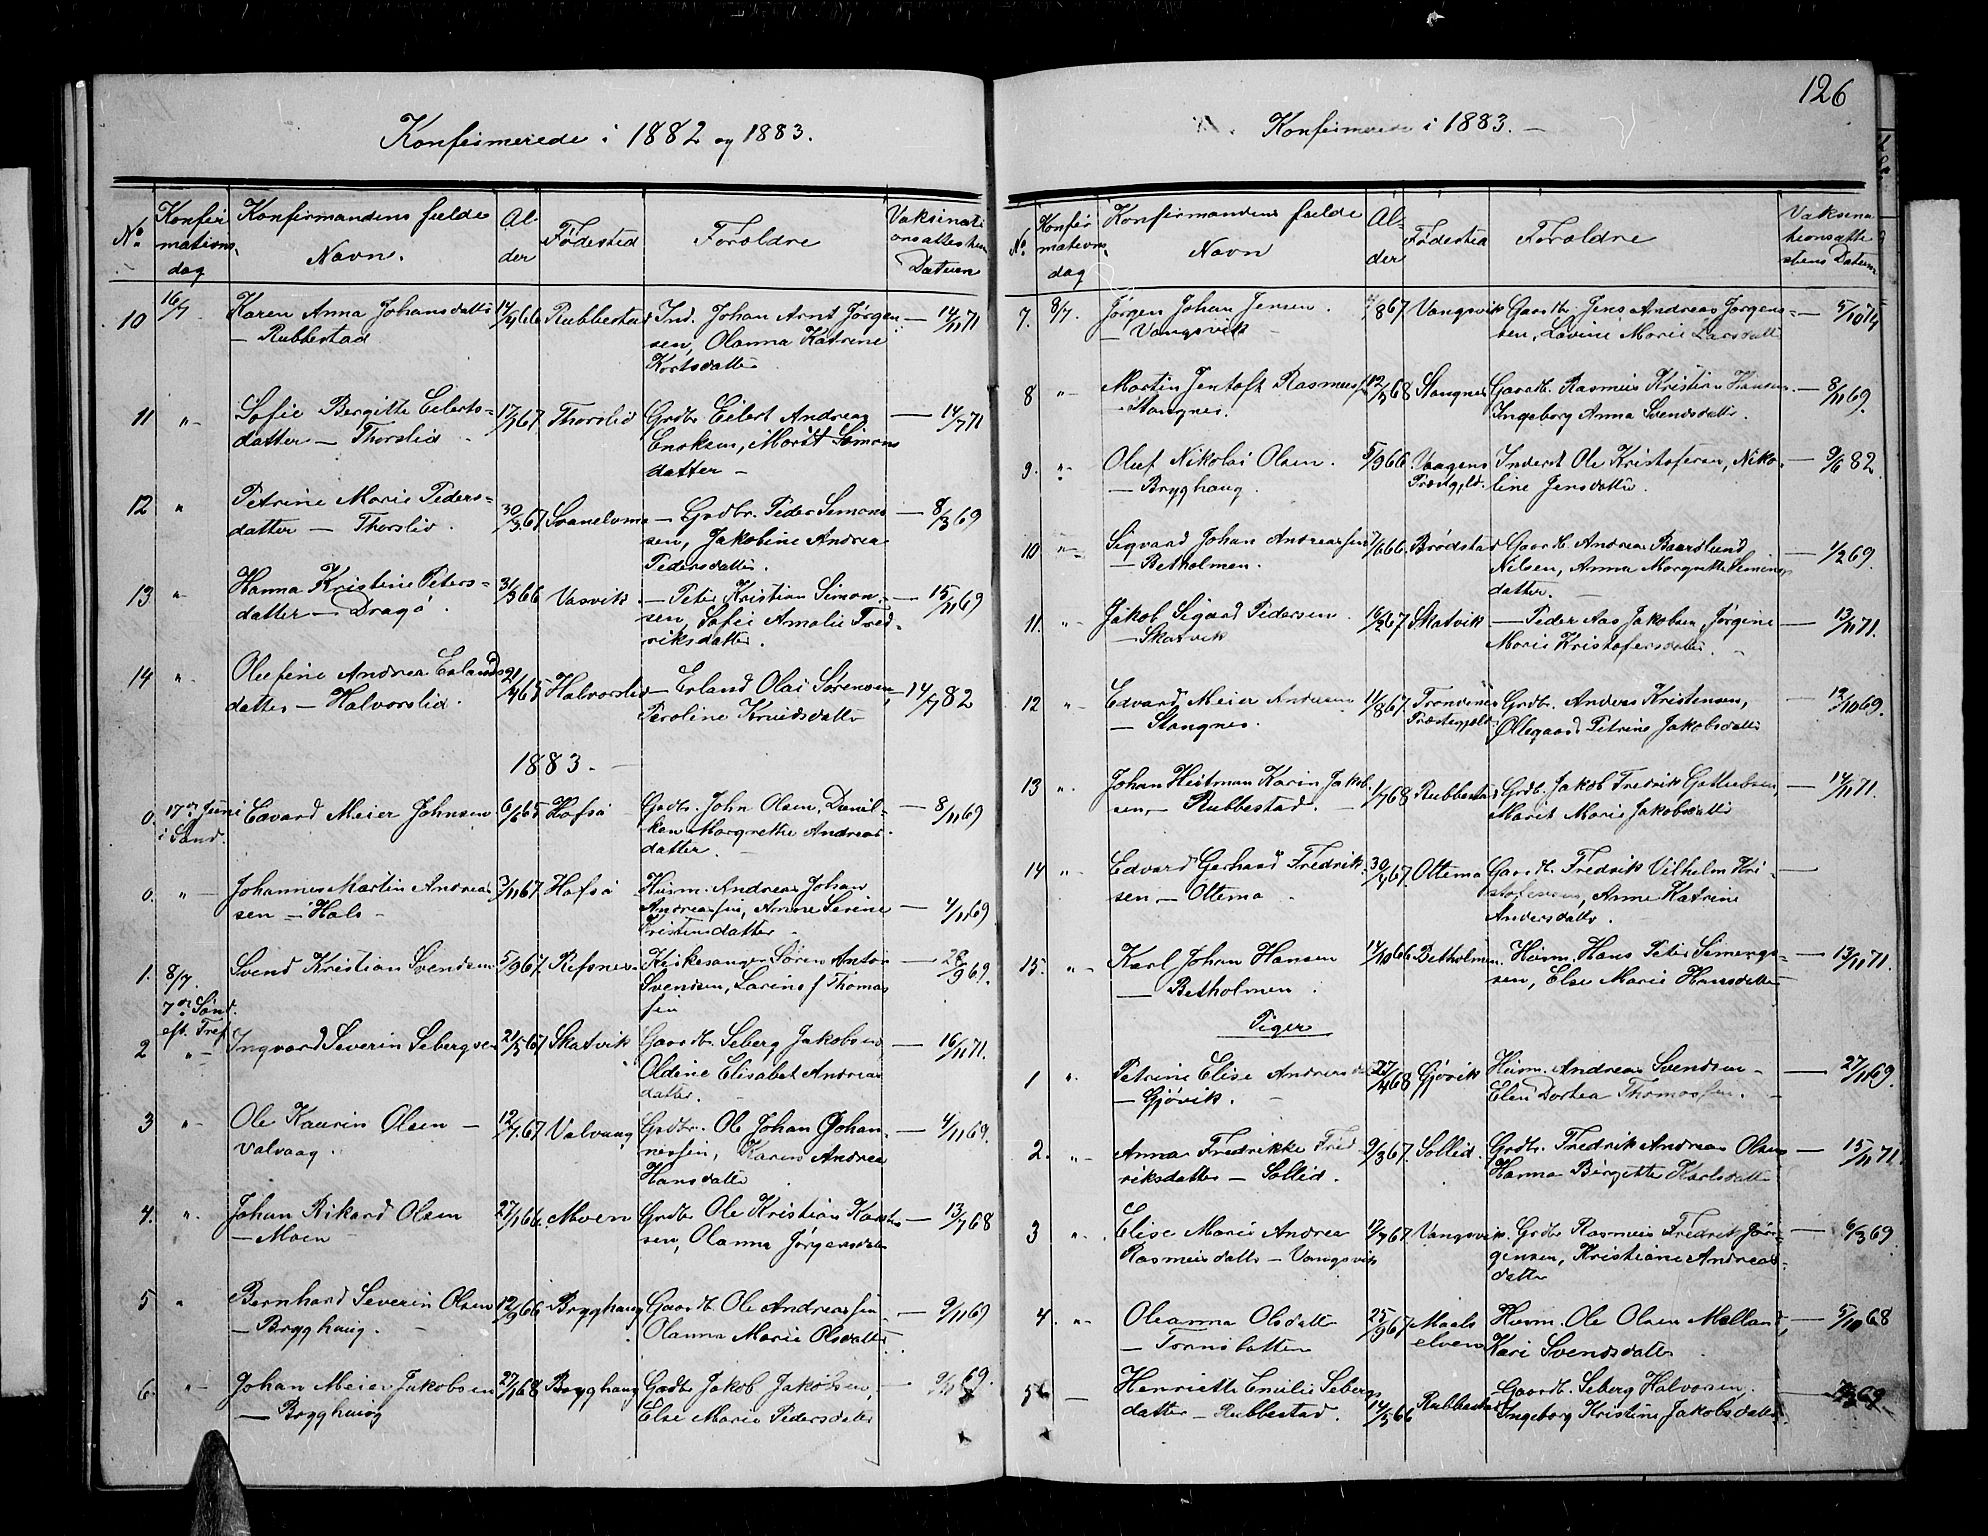 Konfirmerede i 1882 og 1883.
No. Konfirmationsdag Konfirmandens fulde Navn. Alder Fødested Foroldre Vaksinationsattestens Datum
10 16/7 Karen Anna Johansdatter 14/4 66 Rubbestad Ind. Johan Arnt Jørgen- 14/11 71
— Rubbestad sen, Olanna Katrine
Kortsdatter
11 " Sofie Bergitte Eilerts- 17/3 67 Thorslid Grdbr. Eilert Andreas — 14/7 71
datter — Thorslid Enoksen, Marit Simons
datter —
12 " Petrine Marie Peders- 30/3 67 Svanelvmo — Grdbr. Peder Simon- — 8/3 69
datter — Thorslid. sen, Jakobine Andrea
Pedersdatter.
13 " Hanna Kristine Peters- 31/3 66 Vasvik — Peter Kristian Simon- — 15/11 69
datter — Dragø. sen, Sofie Amalie Fred-
riksdatter.
14 " Olefine Andrea Erlands 21/4 65 Halvorslid — Erland Olai Sørensen, 14/7 82
datter — Halvorslid. Peroline Knudsdatter
1883.
0. 17de Juni Edvard Meier Johnsen 6/6 65 Hofsø Grdbr. John Olsen, Daniel- — 8/11 69
i Sand. ken Margrethe Andreas
datter.
0. " Johannes Martin Andreas 3/11 67 Hofsø Husm. Andreas Johan
sen — Hals — Andreassen, Anne Serine — 4/11 69
Kristensdatter
1. 8/7. Svend Kristian Svendsen 5/9 67 Refsnes. Kirkesanger Søren Anton — 28/9 69.
7de Sønd. Svendsen, Larine f Thomas
eft. Tref. sen
2 " Ingvard Severin Sebergsen 21/5 67 Skatvik Gaardbr. Seberg Jakobsen — 16/11 71.
Oldine Elisabet Andreas
datter.
3 " Ole Kaurin Olsen — 12/7 67 Valvaag Grdbr. Ole Johan Johan- — 4/11 69.
Valvaag. nessen, Karen Andrea
Hansdatter
4. " Johan Rikard Olsen 27/1 66. Moen Grdbr Ole Kristian Karsten — 13/7 68
— Moen sen, Olanna Jørgensdatter
5 " Bernhard Severin Olsen 12/9 66 Brygghaug Gaardb. Ole Andreassen — 9/11 69
— Brygghaug. Olanna Marie Olsdatter
6. " Johan Meier Jakobsen 27/1 68 Brygghaug Grdbr Jakob Jakobsen, — 69.
— Brygghaug Else Marie Pedersdatter
126
Konfirmerede i 1883. —
No. Konfirmationsdag Konfirmandens fulde Navn Alder Fødested Foroldre Vaksinationsattestens Datum
7. 8/7. Jørgen Johan Jensen. /8 67 Vangsvik Gaardbr. Jens Andreas Jørgens- — 5/10 74
— Vangsvik — sen, Lovine Marie Larsdatter
8 " Martin Jentoft Rasmussen 12/5 68 Stangnes Gaardb. Rasmus Kristian Hansen — 8/11 69.
— Stangnes. Ingeborg Anna Svendsdatter.
9. " Oluf Nikolai Olsen. 5/9 66 Vaagens Inderst Ole Kristofersen, Niko- — 9/6 82.
— Brygghaug. Præstgjld. line Jensdatter.
10 " Sigvard Johan Andreassen 7/6 66 Brødstad Gaardb. Andreas Baardlund — 1/2 69.
— Betholmen. Nilsen, Anna Margrethe Simings
datter. —
11. " Jakob Sigvard Pedersen. 16/2 67 Skatvik — Peder Aas Jakobsen, Jørgine — 13/11 71.
— Skatvik Marie Kristofersdatter.
12 " Edvard Meier Andersen 11/8 67 Trondenes Grdbr. Anders Kristensen, — 12/10 69.
— Stangnes. Præstegjeld. Ollegaard Petrine Jakobsdatter
13 " Johan Heitman Karin Jakob 1/7 68 Rubbestad Grdb. Jakob Fredrik Gottliebsen, — 14/11 71.
sen, — Rubbestad. Marit Marie Jakobsdatter
14 " Edvard Gerhard Fredrik- 30/4 67. Ottemo Gaardb. Fredrik Vilhelm Kri- —
sen. — Ottemo stofersen, Anne Katrine
Andersdatter.
15. " Karl Johan Hansen 14/10 66 Betholmen. Husm. Hans Peter Simings- — 13/11 71.
— Betholmen. sen, Else Marie Hansdatter
Piger
1 " Petrine Elise Andreasdtr 27/4 68 Gjøvik Husm. Andreas Svendsen — — 27/11 69.
— Gjøvik. Elen Dortea Thomassen.
2. " Anna Fredrikke Fred 9/3 67. Sollid. Grdbr. Fredrik Andreas Olsen — 15/11 71
riksdatter — Sollid. Hanna Birgitte Karlsdatter
3 " Elise Marie Andrea 12/7 67 Vangsvik. Grdbr Rasmus Fredrik Jør- — 6/3 69.
Rasmusdatter — Vangsvik gensen, Kristiane Andreas-
datter
4. " Oleanna Olsdatter 25/9 67 Maals Husm. Ole Olsen Melland, — 5/10 68
— Tornslatten elven Kari Svendsdatter
5 Henriette Emilie Sebergs 14/5 66 Rubbestad Gaardb. Seberg Halvorsen. 69.
datter — Rubbestad. Ingeborg Kristine Jakobsdatter.